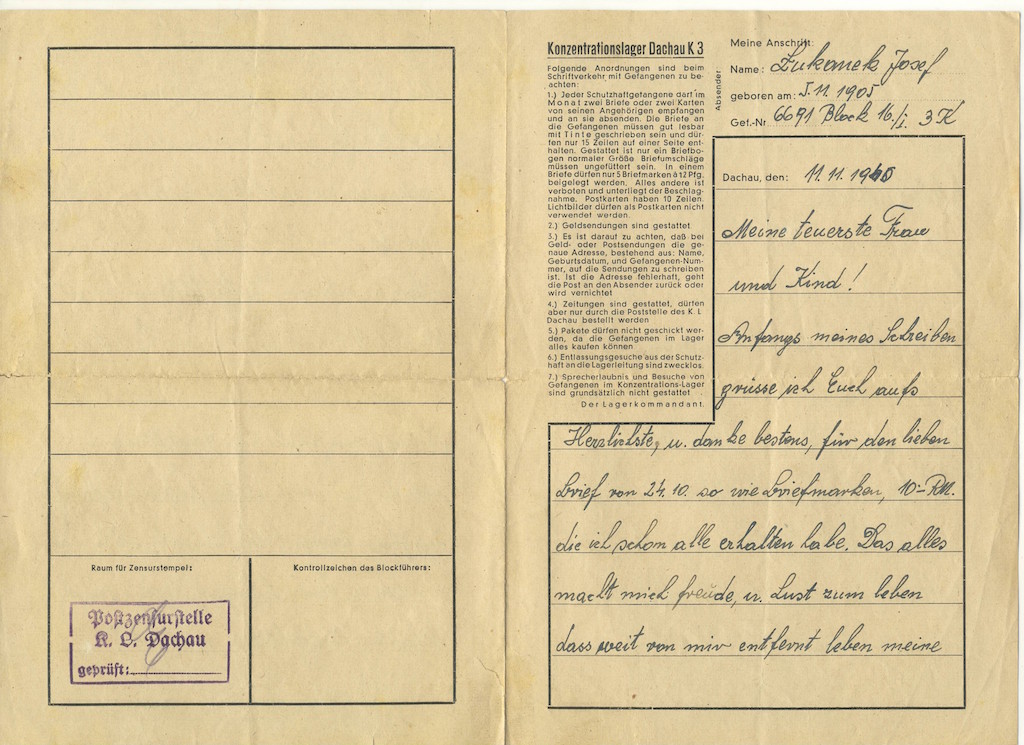 Raum für Zensurstempel:
Kontrollzeichen des Blockführers:
Postzensurstelle
K. L. Dachau
geprüft:
Konzentrationslager Dachau K 3
Folgende Anordnungen sind beim
Schriftverkehr mit Gefangenen zu be-
achten:
1.) Jeder Schutzhaftgefangene darf im
Monat zwei Briefe oder zwei Karten
von seinen Angehörigen empfangen
und an sie absenden. Die Briefe an
die Gefangenen müssen gut lesbar
mit Tinte geschrieben sein und dür-
fen nur 15 Zeilen auf einer Seite ent-
halten. Gestattet ist nur ein Briefbo-
gen normaler Größe Briefumschläge
müssen ungefüttert sein. In einem
Briefe dürfen nur 5 Briefmarken á 12 Pfg.
beigelegt werden. Alles andere ist
verboten und unterliegt der Beschlag-
nahme. Postkarten haben 10 Zeilen.
Lichtbilder dürfen als Postkarten nicht
verwendet werden.
2.) Geldsendungen sind gestattet
3.) Es ist darauf zu achten, daß bei
Geld- oder Postsendungen die ge-
naue Adresse, bestehend aus: Name,
Geburtsdatum, und Gefangenen-Num-
mer, auf die Sendungen zu schreiben
ist. Ist die Adresse fehlerhaft, geht
die Post an den Absender zurück oder
wird vernichtet
4.) Zeitungen sind gestattet, dürfen
aber nur durch die Poststelle des K. L.
Dachau bestellt werden
5.) Pakete dürfen nicht geschickt wer-
den, da die Gefangenen im Lager
alles kaufen können
6.) Entlassungsgesuche aus der Schutz-
haft an die Lagerleitung sind zwecklos.
7.) Sprecherlaubnis und Besuche von
Gefangenen im Konzentrations-Lager
sind grundsätzlich nicht gestattet
Der Lagerkommandant.
Absender:
Meine Anschrift:
Name: Josef
geboren am: 5.11.1905
Gef.-Nr. 6691 Block 16./I. 3 K
Dachau, den: 11.11.
Meine teuerste Frau
und Kind!
Anfangs meines Schreiben
grüsse ich Euch aufs
Herzlichste, u. danke bestens, für den lieben
Brief von 24.10. so wie Briefmarken, 10.- RM.
die ich schon alle erhalten habe. Das alles
macht mich freude, u. Lust zum leben
dass weit von mir entfernt leben meine